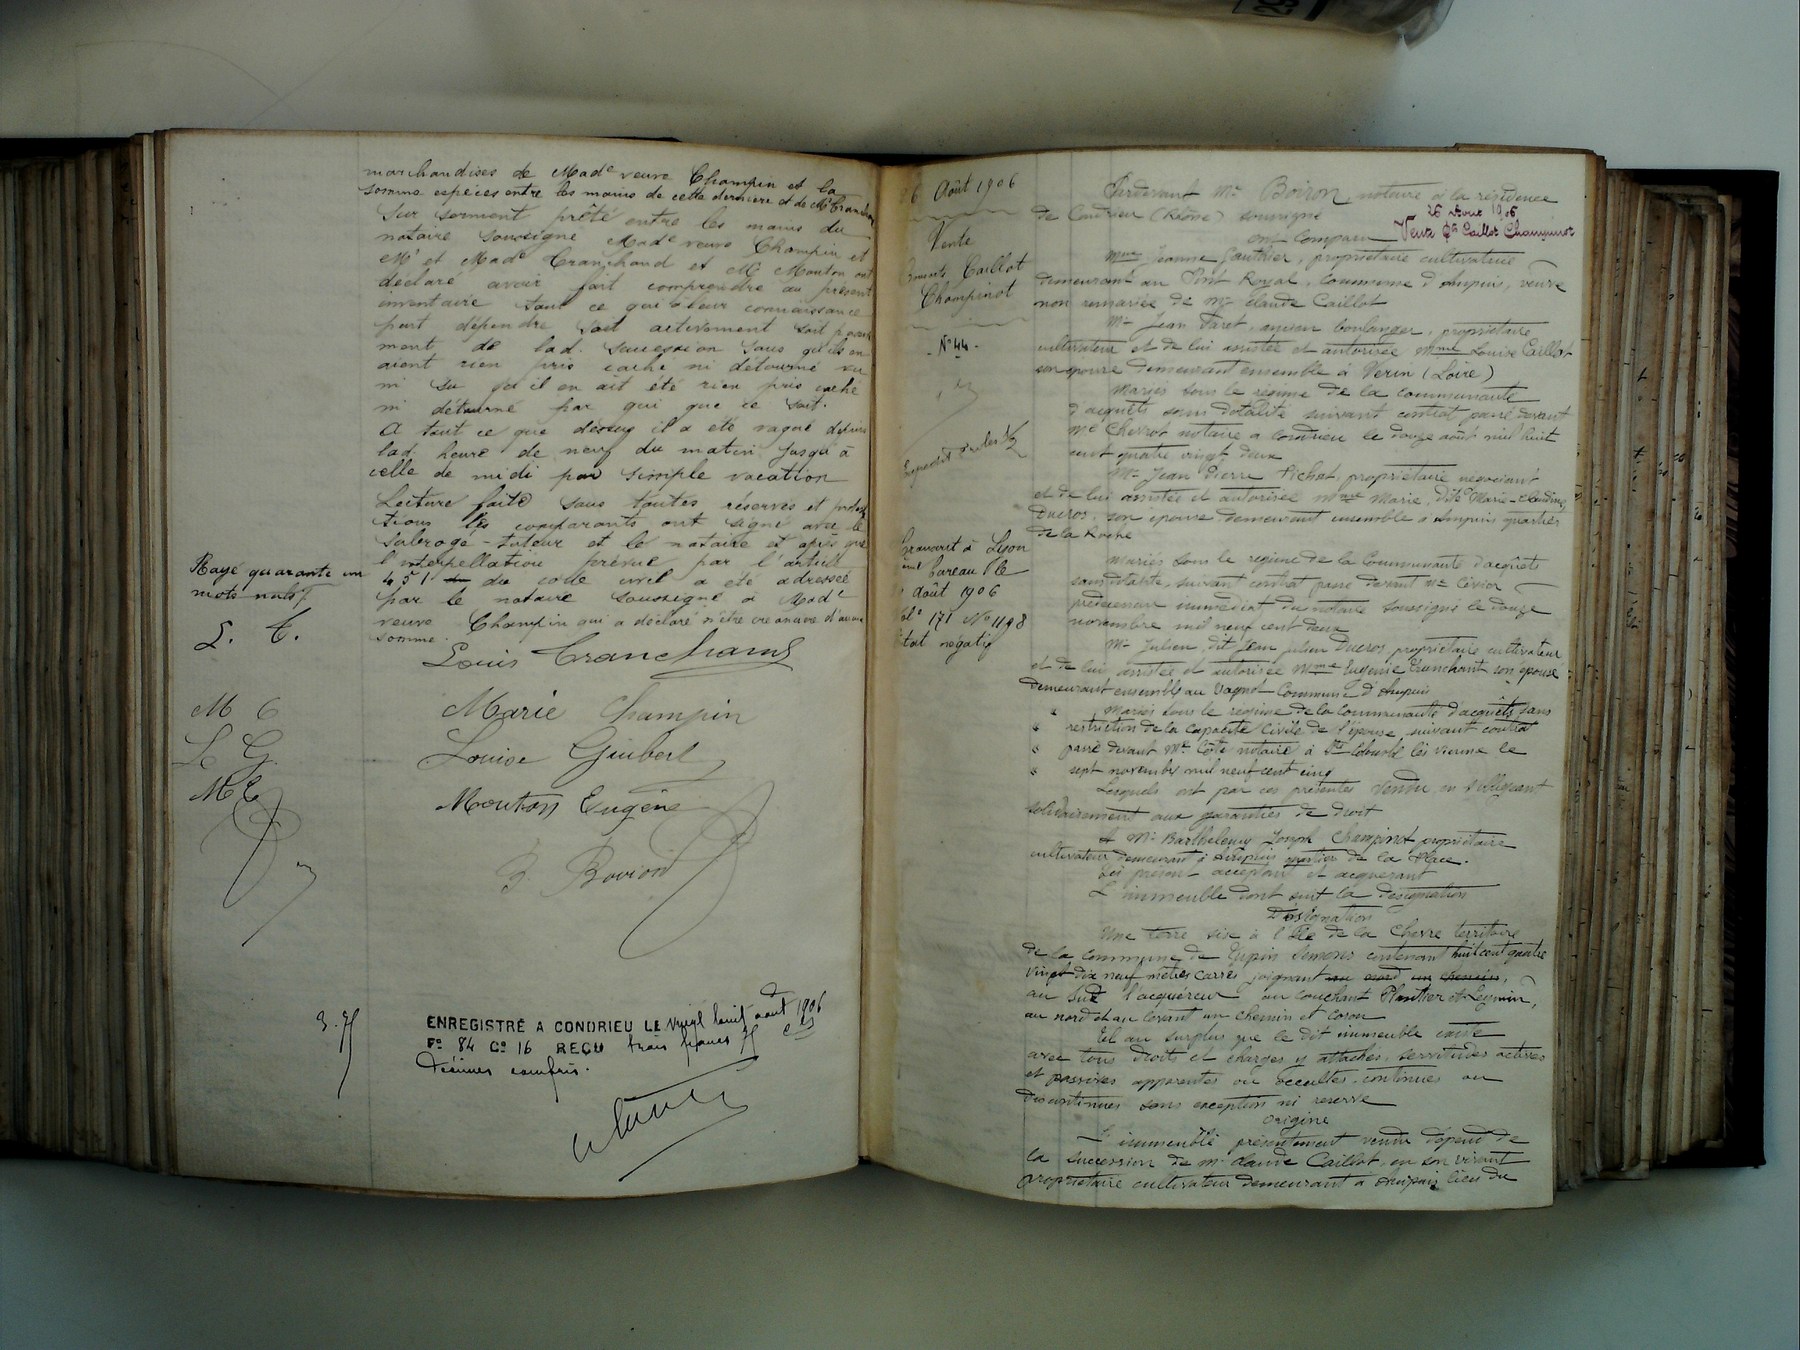 marchandises de Madᵉ veuve Champin et la
somme espèces entre les mains de cette dernière et de Mr Cranchand
Sur serment prêté entre les mains du
notaire soussigné Madᵉ veuve Champin et
Mr et Madᵉ Cranchand et Mr Mouton ont
déclaré avoir fait comprendre au présent
inventaire tout ce qui à leur connaissance
peut dépendre soit activement soit passive
ment de lad. succession sans qu'ils en
aient rien pris caché ni détourné vu
ni su qu'il en ait été rien pris caché
ni détourné par qui que ce soit.
A tout ce que dessus il a été vaqué depuis
lad. heure de neuf du matin jusqu'à
celle de midi par simple vacation
Lecture faite sous toutes réserves et protesta
tions les comparants ont signé avec le
subrogé-tuteur et le notaire et après que
l'interpellation prévue par l'article
451 du code civil a été adressée
par le notaire soussigné à Madᵉ
veuve Champin qui a déclaré n'être créancière d'aucune
somme.
Rayé quarante un
mots nuls
L. C.
M C
L G.
M E
Louis Cranchand
Marie Champin
Louise Guibert
Mouton Eugène
B. Boviron
3.75
ENREGISTRÉ A CONDRIEU LE vingt huit août 1906
Fº 84 Cº 16 REÇU trois francs 75 cts
Décimes compris.
26 Août 1906
Vente
Consorts Caillot
Champinot
- Nº 44 -
Transcrit à Lyon
bureau le
août 1906
171 Nº 1198
Etat négatif
Pardevant Me Boiron, notaire à la résidence
de Condrieu (Rhône) soussigné
26 Aout 1906
Vente Cts Caillot Champinot
Ont Comparu
Mme Jeanne Gauthier, propriétaire cultivatrice
demeurant au Port Royal, commune d'Ampuis, veuve
non remariée de Mr Claude Caillot
Mr Jean Paret, ancien boulanger, propriétaire
cultivateur et de lui assistée et autorisée Mme Louise Caillot
son épouse demeurant ensemble à Verin (Loire)
Mariés sous le régime de la communauté
d'acquêts sans dotalité suivant contrat passé devant
Me Cherrot notaire a Condrieu le douze août mil huit
cent quatre vingt deux
Mr Jean Pierre Pichat propriétaire négociant
et de lui assistée et autorisée Mme Marie, dite Marie-Claudine
Ducros, son épouse demeurant ensemble à Ampuis quartier
de la Roche
Mariés sous le régime de la Communauté d'acquêts
sans dotalité, suivant contrat passé devant Me Civier
prédécesseur immédiat du notaire soussigné le douze
novembre mil neuf cent deux
Mr Julien, dit Jean Julien Ducros, propriétaire cultivateur
et de lui assistée et autorisée Mme Eugénie Tranchant son épouse
demeurant ensemble au Vagnot Commune d'Ampuis
Mariés sous le régime de la Communauté d'acquêts sans
restriction de la capacité civile de l'épouse, suivant contrat
passé devant Me Côte notaire à Ste Colombe lès Vienne le
sept novembre mil neuf cent cinq
Lesquels ont par ces présentes vendu en s'obligeant
solidairement aux garanties de droit
A Mr Barthelemy Joseph Champinot propriétaire
cultivateur demeurant à Ampuis quartier de la Place.
Ici présent acceptant et acquérant
L'immeuble dont suit la désignation
Désignation
Une terre sise à l'Ile de la Chèvre territoire
de la commune de Tupin Semons contenant huit cent quatre
vingt dix neuf mètres carrés joignant au nord un chemin,
au Sud l'acquéreur au couchant Plantier et Leymin,
au nord et au levant un chemin et Coron
Tel au surplus que le dit immeuble existe
avec tous droits et charges y attachés, servitudes actives
et passives apparentes ou occultes, continues ou
discontinues sans exception ni reserve
Origine
L'immeuble présentement vendu dépend de
la succession de Mr Claude Caillot, en son vivant
propriétaire cultivateur demeurant à Ampuis lieu du